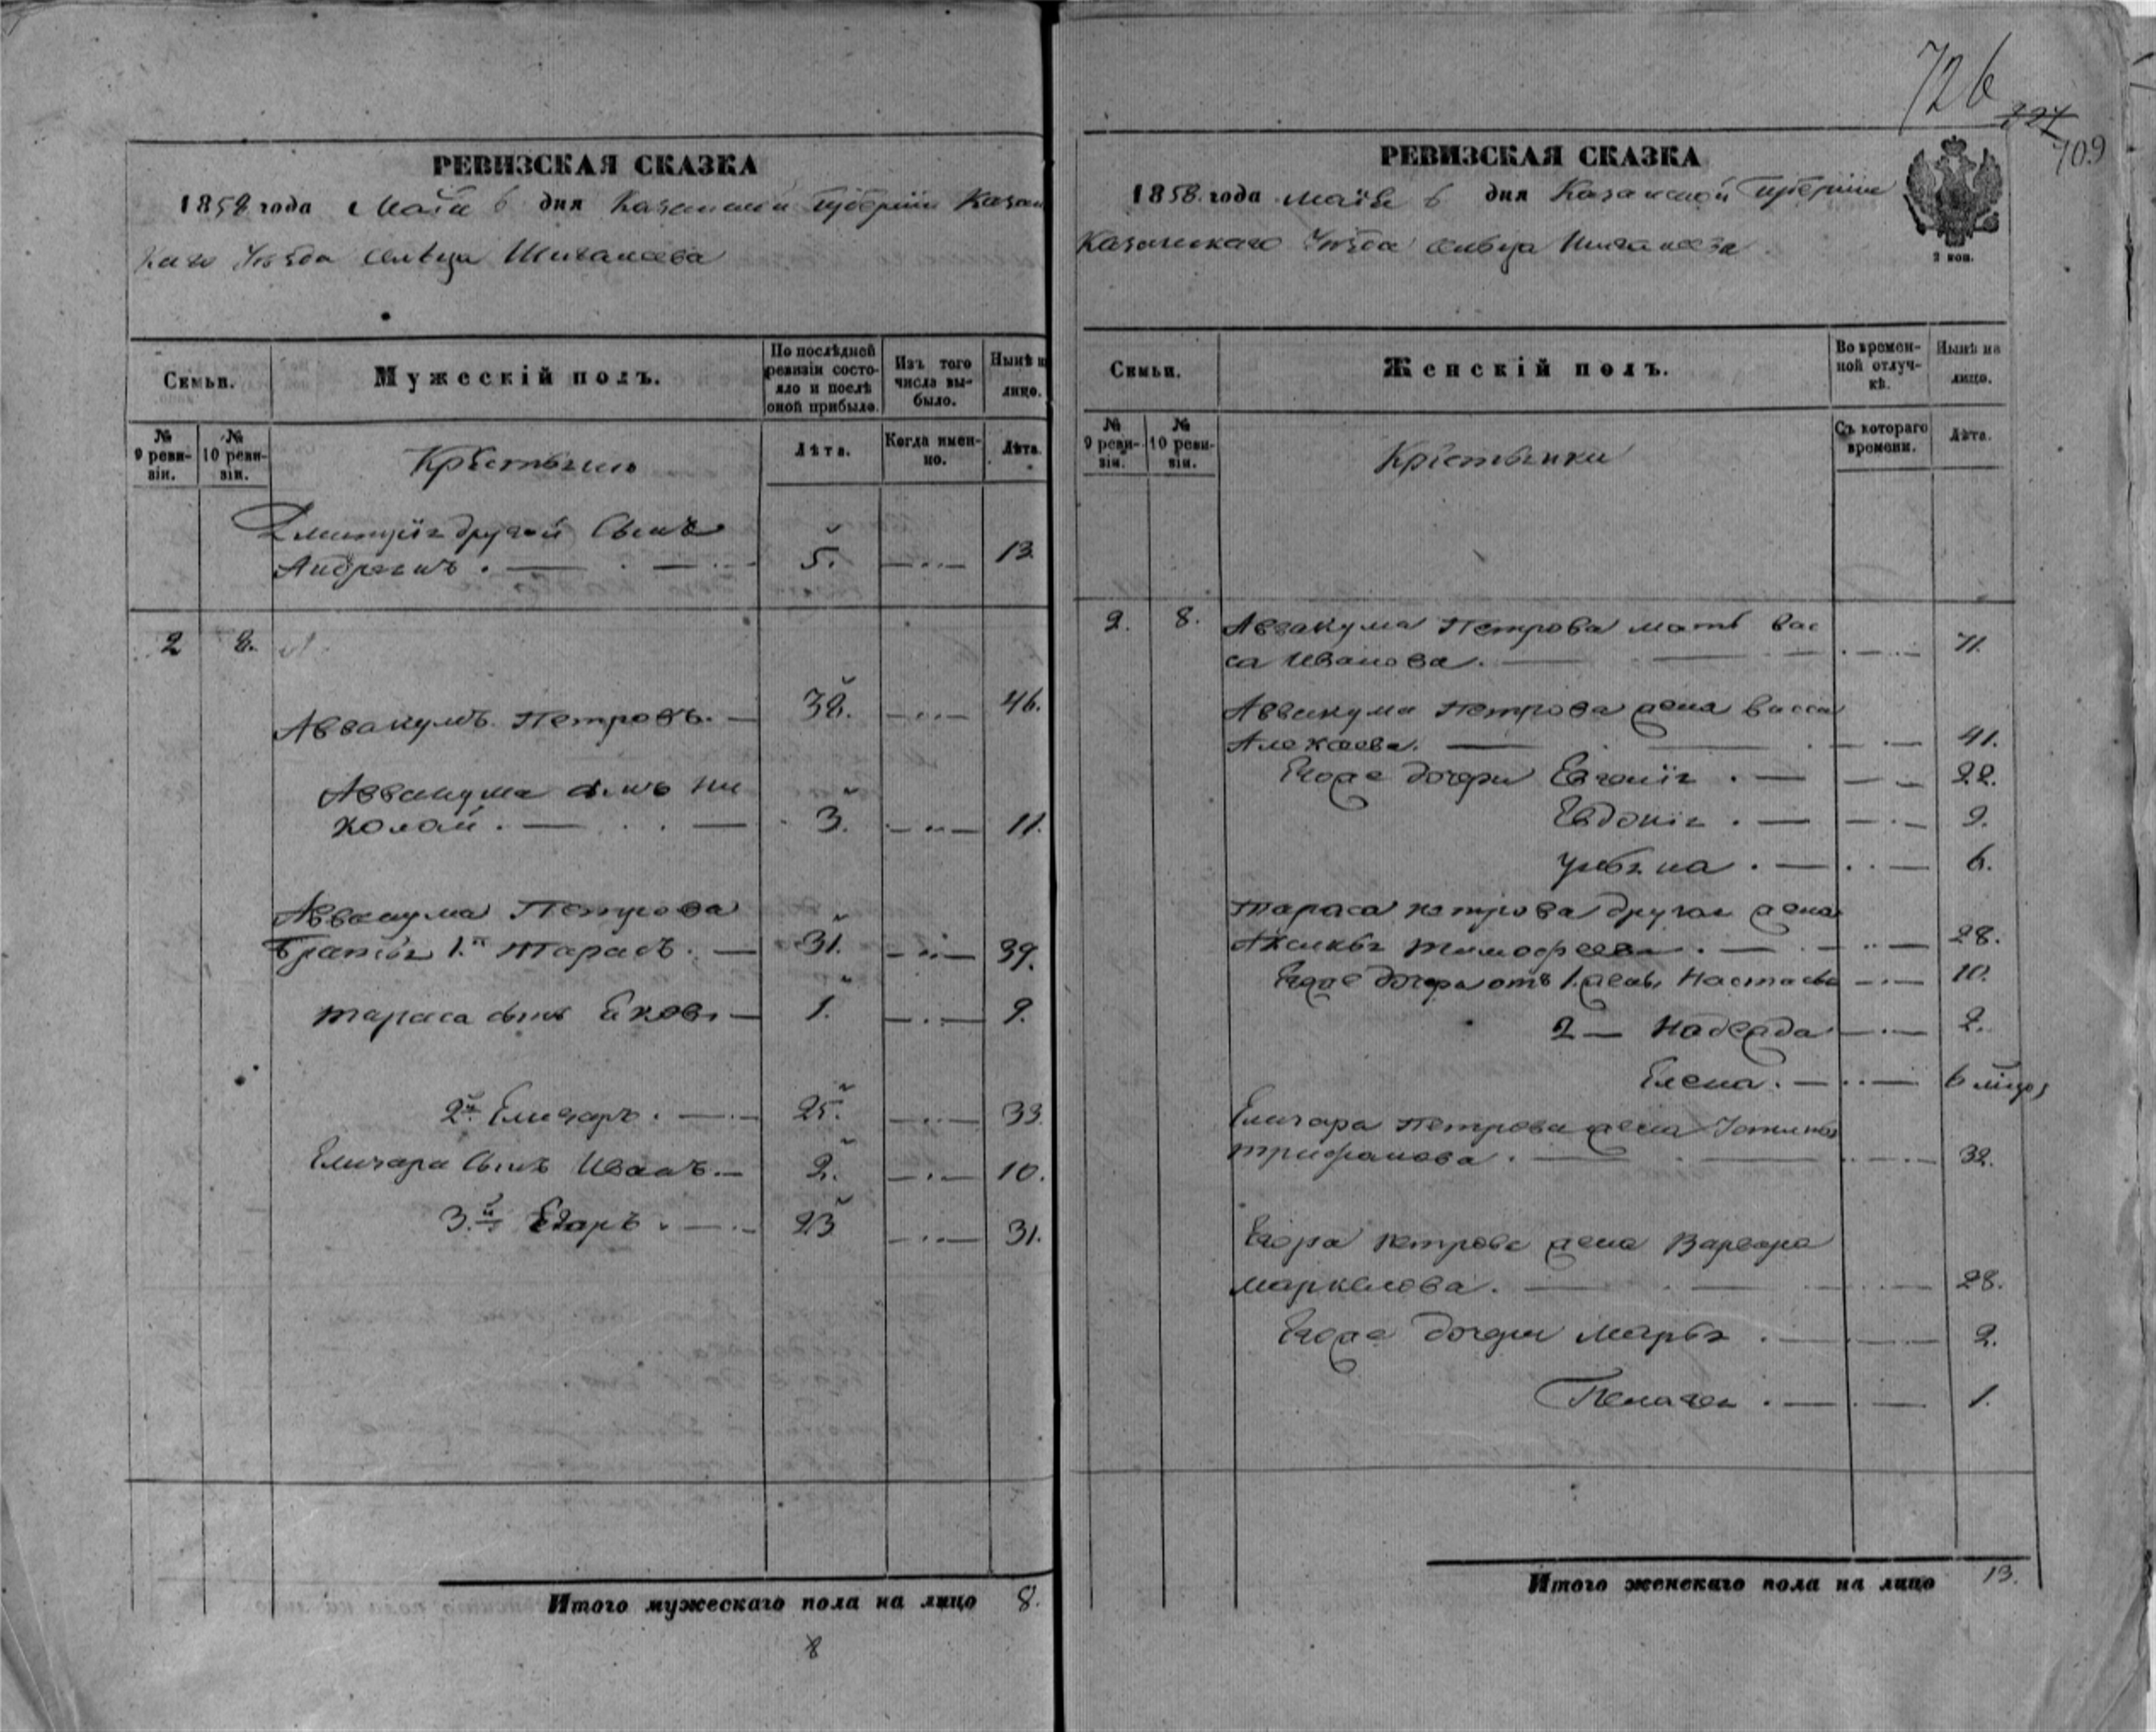 726
327
709
РЕВИЗСКАЯ СКАЗКА
1858 года Маія 6 дня Казанской Губерніи Казан
каго Уѣзда сельца Шигалеева
Семьи.
Мужескій полъ.
По послѣдней ревизіи состояло и послѣ оной прибыло.
Изъ того числа выбыло.
Нынѣ на лицо.
№ 9 ревизіи.
№ 10 ревизіи.
Крестьяне
Лѣта.
Когда именно.
Лѣта.
Дмитрія другой Сынъ
Андреянъ . — . — 5. — 13.
2 8.
Аввакумъ Петровъ. — 38. — 46.
Аввакума сынъ Ни
колай . — . . — 3. — 11.
Аввакума Петрова
братья 1й Тарасъ. — 31. — 39.
Тараса сынъ Яковъ — 1. — 9.
2й Елизаръ . — 25. — 33.
Елизара Сынъ Иванъ. — 2. — 10.
3й Егоръ . — 23 — 31.
Итого мужескаго пола на лицо 8.
8
РЕВИЗСКАЯ СКАЗКА
1858 года маія 6 дня Казанской Губерніи
Казанскаго Уѣзда сельца Шигалеева
2 коп.
Семьи.
Женскій полъ.
Во временной отлучкѣ.
Нынѣ на лицо.
№ 9 ревизіи.
№ 10 ревизіи.
Крестьянки
Съ котораго времени.
Лѣта.
2. 8. Аввакума Петрова мать Вас
са Иванова. — 71.
Аввакума Петрова жена Васса
Алекаева. — 41.
Егоже дочери Евгенія . — 22.
Евдокія . — 9.
Ульяна . — 6.
Тараса Петрова другая жена
Аксинья Тимофеева . — 28.
Егоже дочери отъ 1. жены Настасья — 10.
2 — Надежда — 2.
Елена . — 6
Елизара Петрова жена Устинья
Трифанова . — 32.
Егора Петрова жена Варвара
Маркелова . — 28.
Егоже дочери Марья . — 2.
Пелагея . — 1.
Итого женскаго пола на лицо 13.